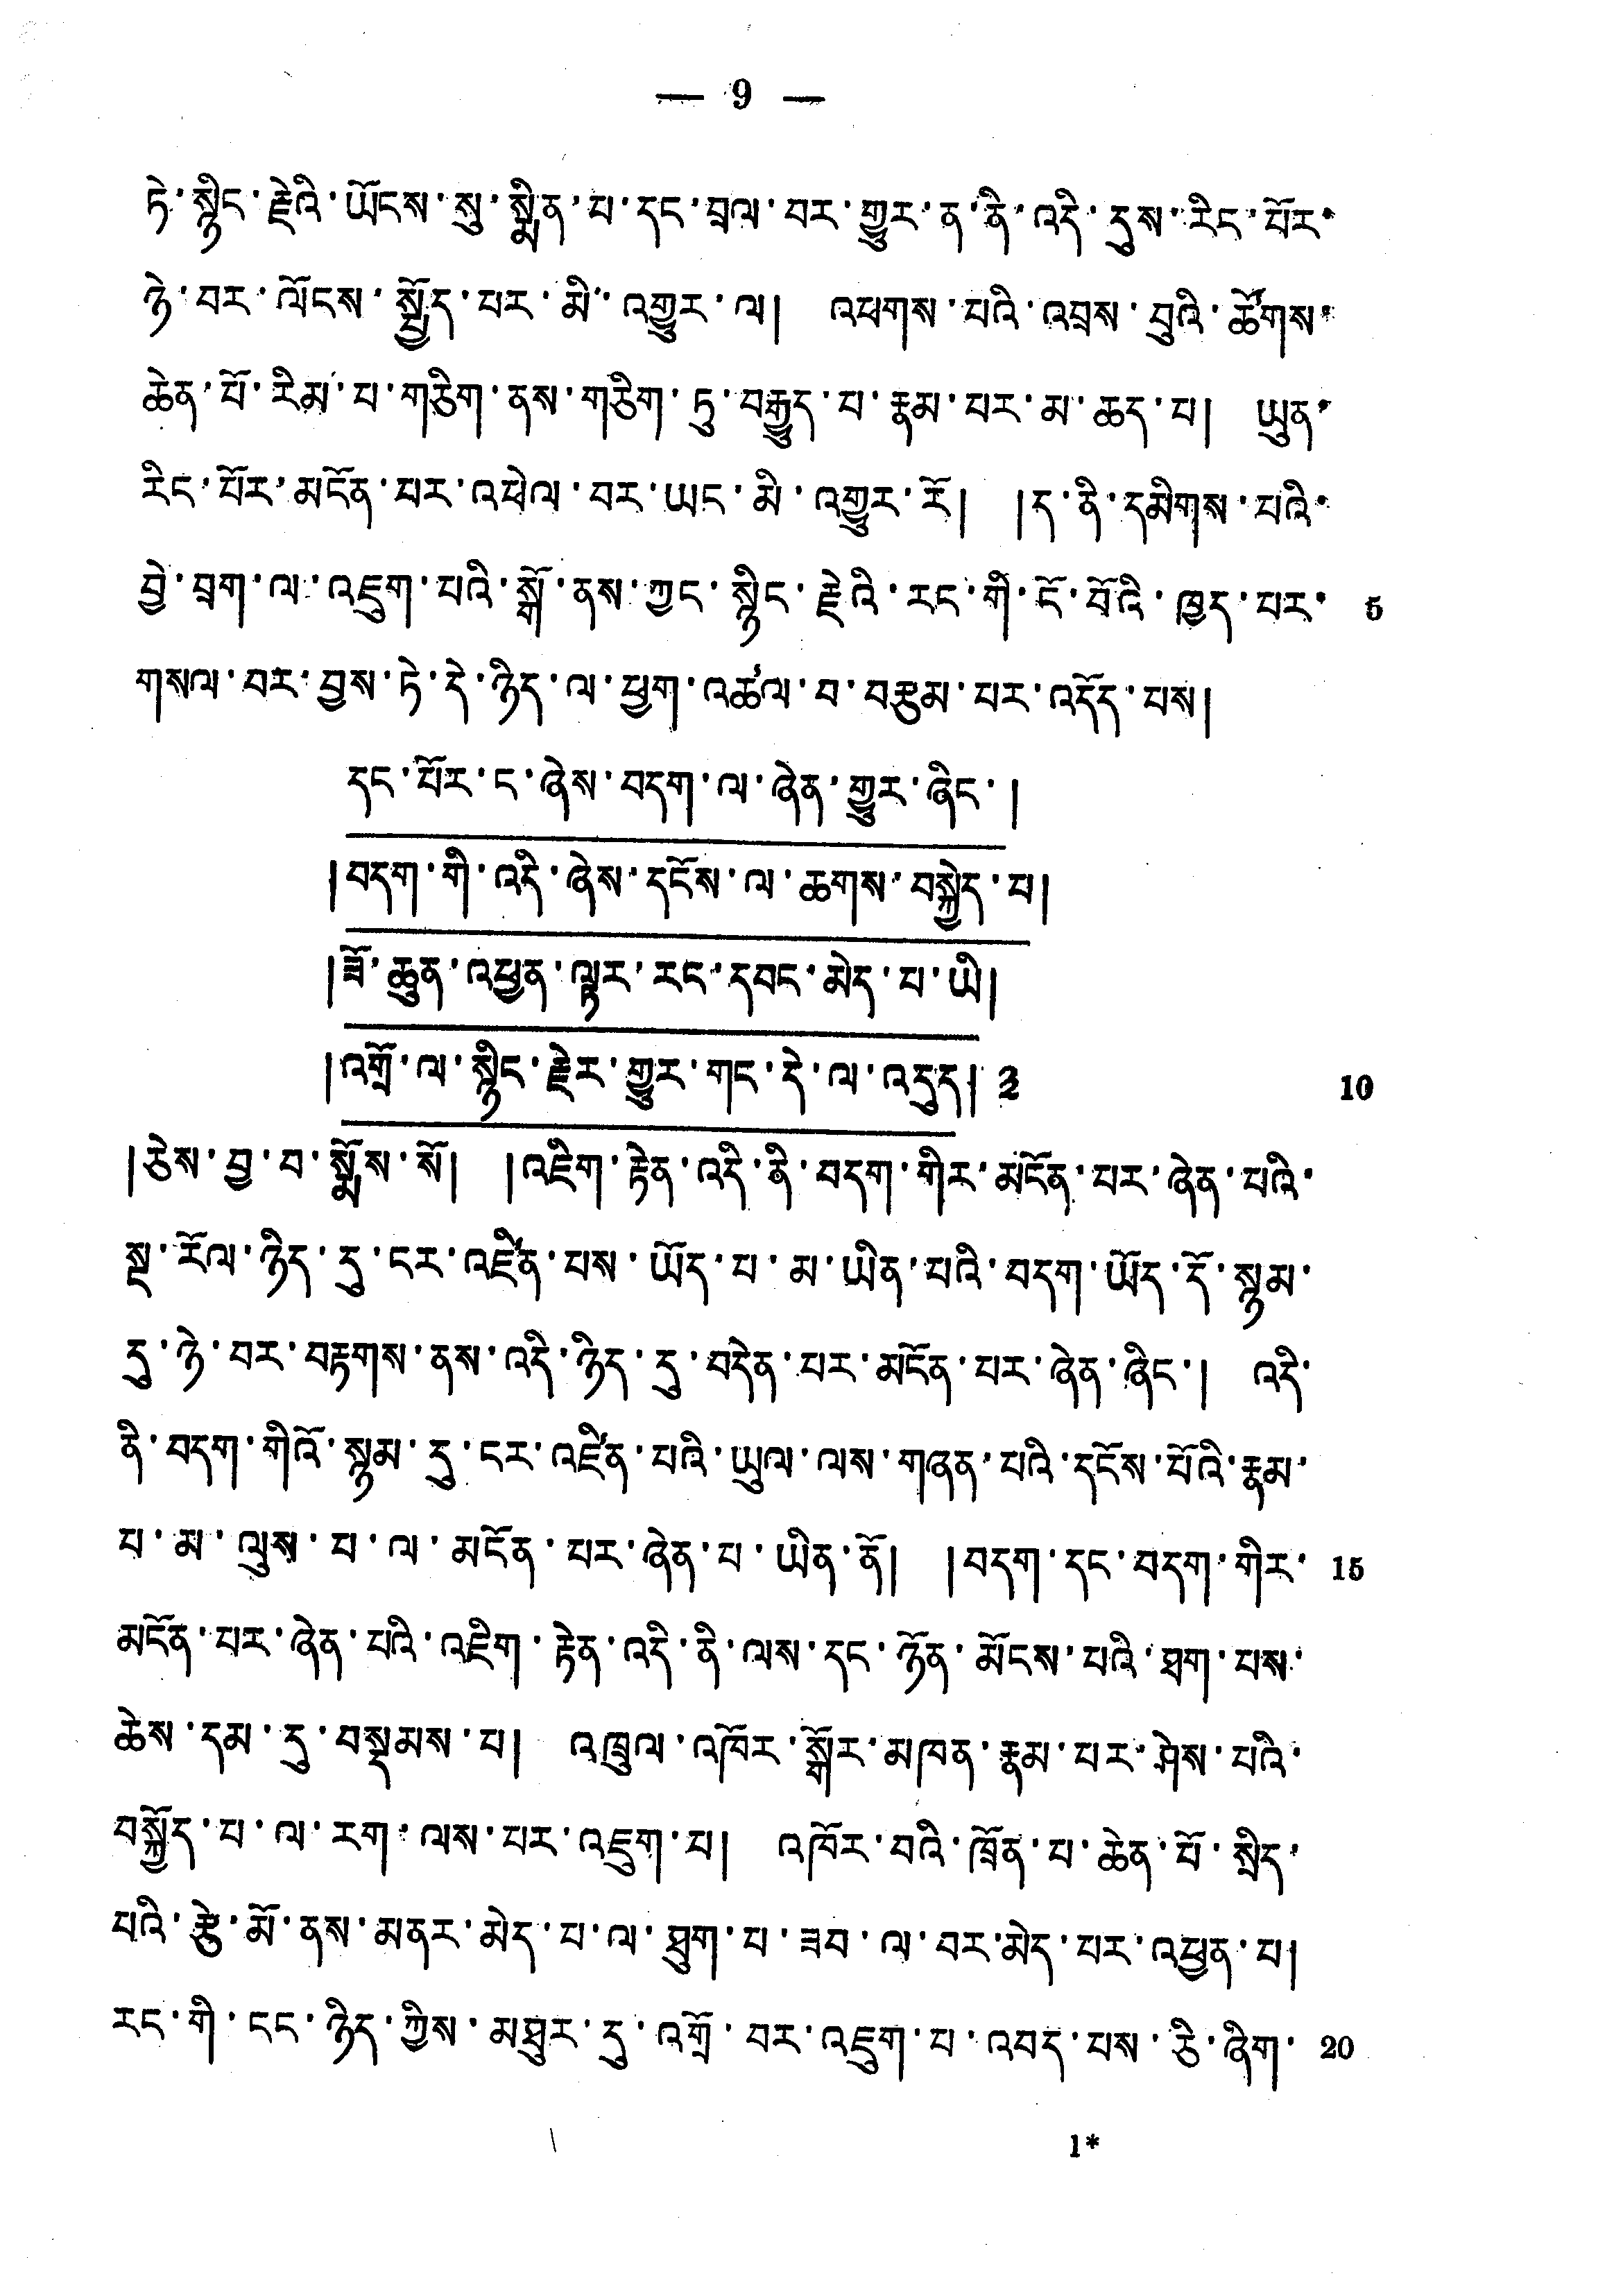 — 9 —
ཏེ་སྙིང་རྗེའི་ཡོངས་སུ་སྨིན་པ་དང་བྲལ་བར་གྱུར་ན་ནི་འདི་དུས་རིང་པོར་
ཉེ་བར་ལོངས་སྤྱོད་པར་མི་འགྱུར་ལ། འཕགས་པའི་འབྲས་བུའི་ཚོགས་
ཆེན་པོ་རིམ་པ་གཅིག་ནས་གཅིག་ཏུ་བརྒྱུད་པ་རྣམ་པར་མ་ཆད་པ། ཡུན་
རིང་པོར་མངོན་པར་འཕེལ་བར་ཡང་མི་འགྱུར་རོ། །ད་ནི་དམིགས་པའི་
བྱེ་བྲག་ལ་འཇུག་པའི་སྒོ་ནས་ཀྱང་སྙིང་རྗེའི་རང་གི་ངོ་བོའི་ཁྱད་པར་ 5
གསལ་བར་བྱས་ཏེ་དེ་ཉིད་ལ་ཕྱག་འཚལ་བ་བརྩམ་པར་འདོད་པས།
དང་པོར་ང་ཞེས་བདག་ལ་ཞེན་གྱུར་ཞིང་།
།བདག་གི་འདི་ཞེས་དངོས་ལ་ཆགས་བསྐྱེད་པ།
།ཟོ་ཆུན་འཕྱན་ལྟར་རང་དབང་མེད་པ་ཡི།
།འགྲོ་ལ་སྙིང་རྗེར་གྱུར་གང་དེ་ལ་འདུད། ༣ 10
།ཅེས་བྱ་བ་སྨོས་སོ། །འཇིག་རྟེན་འདི་ནི་བདག་གིར་མངོན་པར་ཞེན་པའི་
སྔ་རོལ་ཉིད་དུ་ངར་འཛིན་པས་ཡོད་པ་མ་ཡིན་པའི་བདག་ཡོད་དོ་སྙམ་
དུ་ཉེ་བར་བརྟགས་ནས་འདི་ཉིད་དུ་བདེན་པར་མངོན་པར་ཞེན་ཞིང་། འདི་
ནི་བདག་གིའོ་སྙམ་དུ་ངར་འཛིན་པའི་ཡུལ་ལས་གཞན་པའི་དངོས་པོའི་རྣམ་
པ་མ་ལུས་པ་ལ་མངོན་པར་ཞེན་པ་ཡིན་ནོ། །བདག་དང་བདག་གིར་ 15
མངོན་པར་ཞེན་པའི་འཇིག་རྟེན་འདི་ནི་ལས་དང་ཉོན་མོངས་པའི་ཐག་པས་
ཆེས་དམ་དུ་བསྡམས་པ། འཁྲུལ་འཁོར་སྐོར་མཁན་རྣམ་པར་ཤེས་པའི་
བསྐྱོད་པ་ལ་རག་ལས་པར་འཇུག་པ། འཁོར་བའི་ཁྲོན་པ་ཆེན་པོ་སྲིད་
པའི་རྩེ་མོ་ནས་མནར་མེད་པ་ལ་ཐུག་པ་ཟབ་ལ་བར་མེད་པར་འཕྱན་པ།
རང་གི་ངང་ཉིད་ཀྱིས་མཐུར་དུ་འགྲོ་བར་འཇུག་པ་འབད་པས་ཅི་ཞིག་ 20
1*